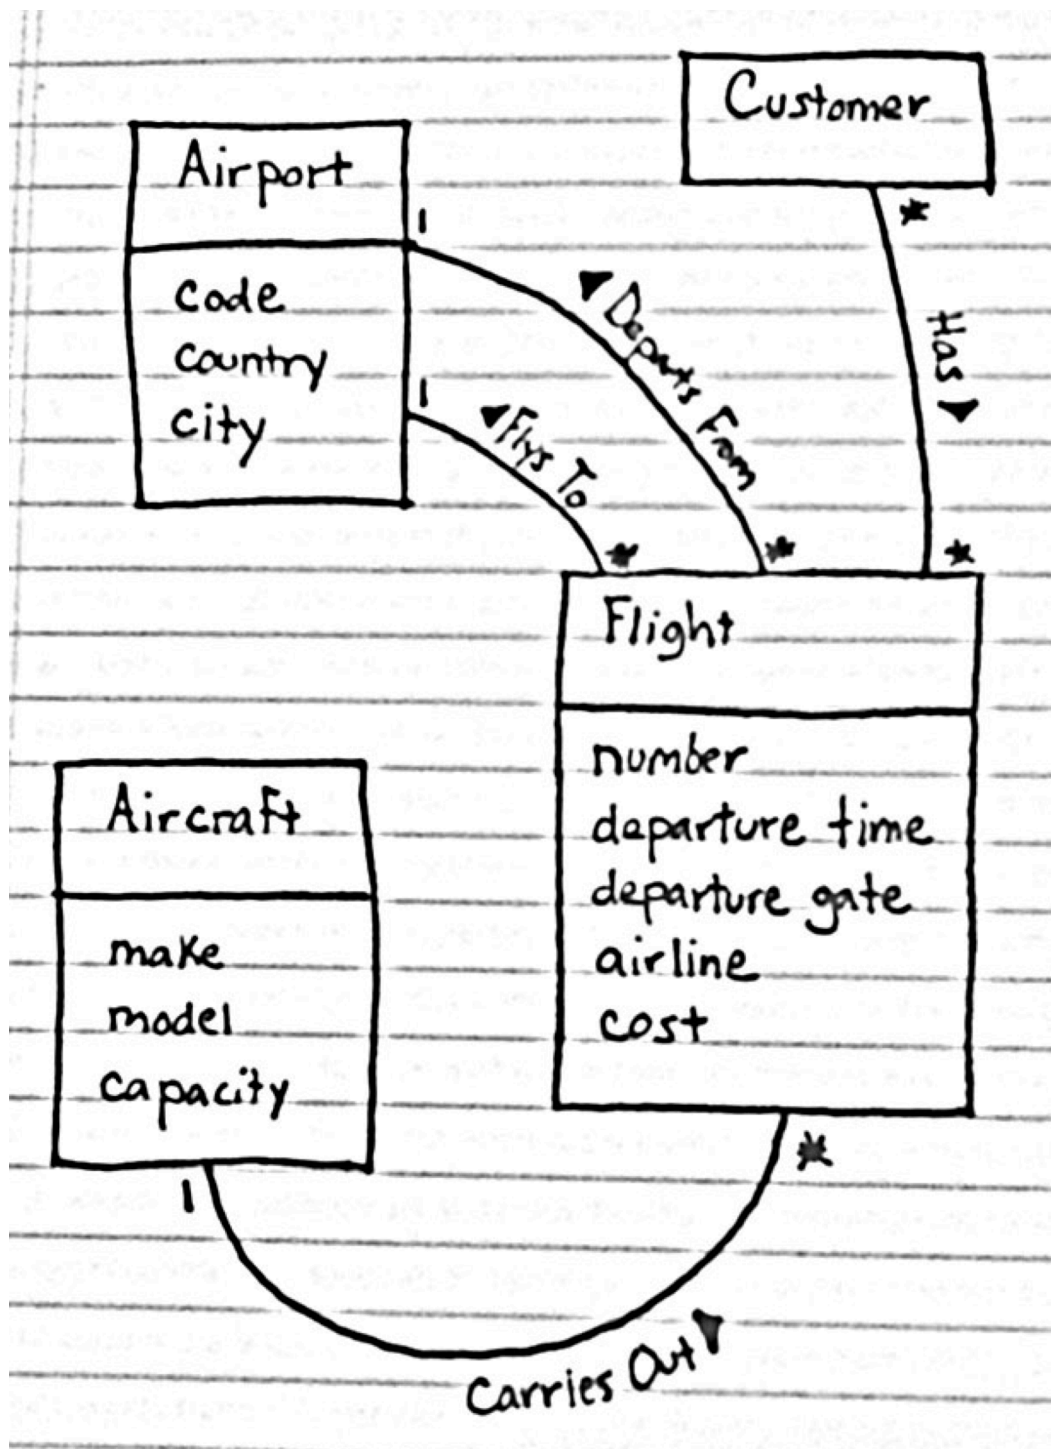 Customer
*
Has
*
Airport
code
country
city
1
Departs From
*
1
Flys To
*
Flight
number
departure time
departure gate
airline
cost
*
Aircraft
make
model
capacity
1
Carries Out